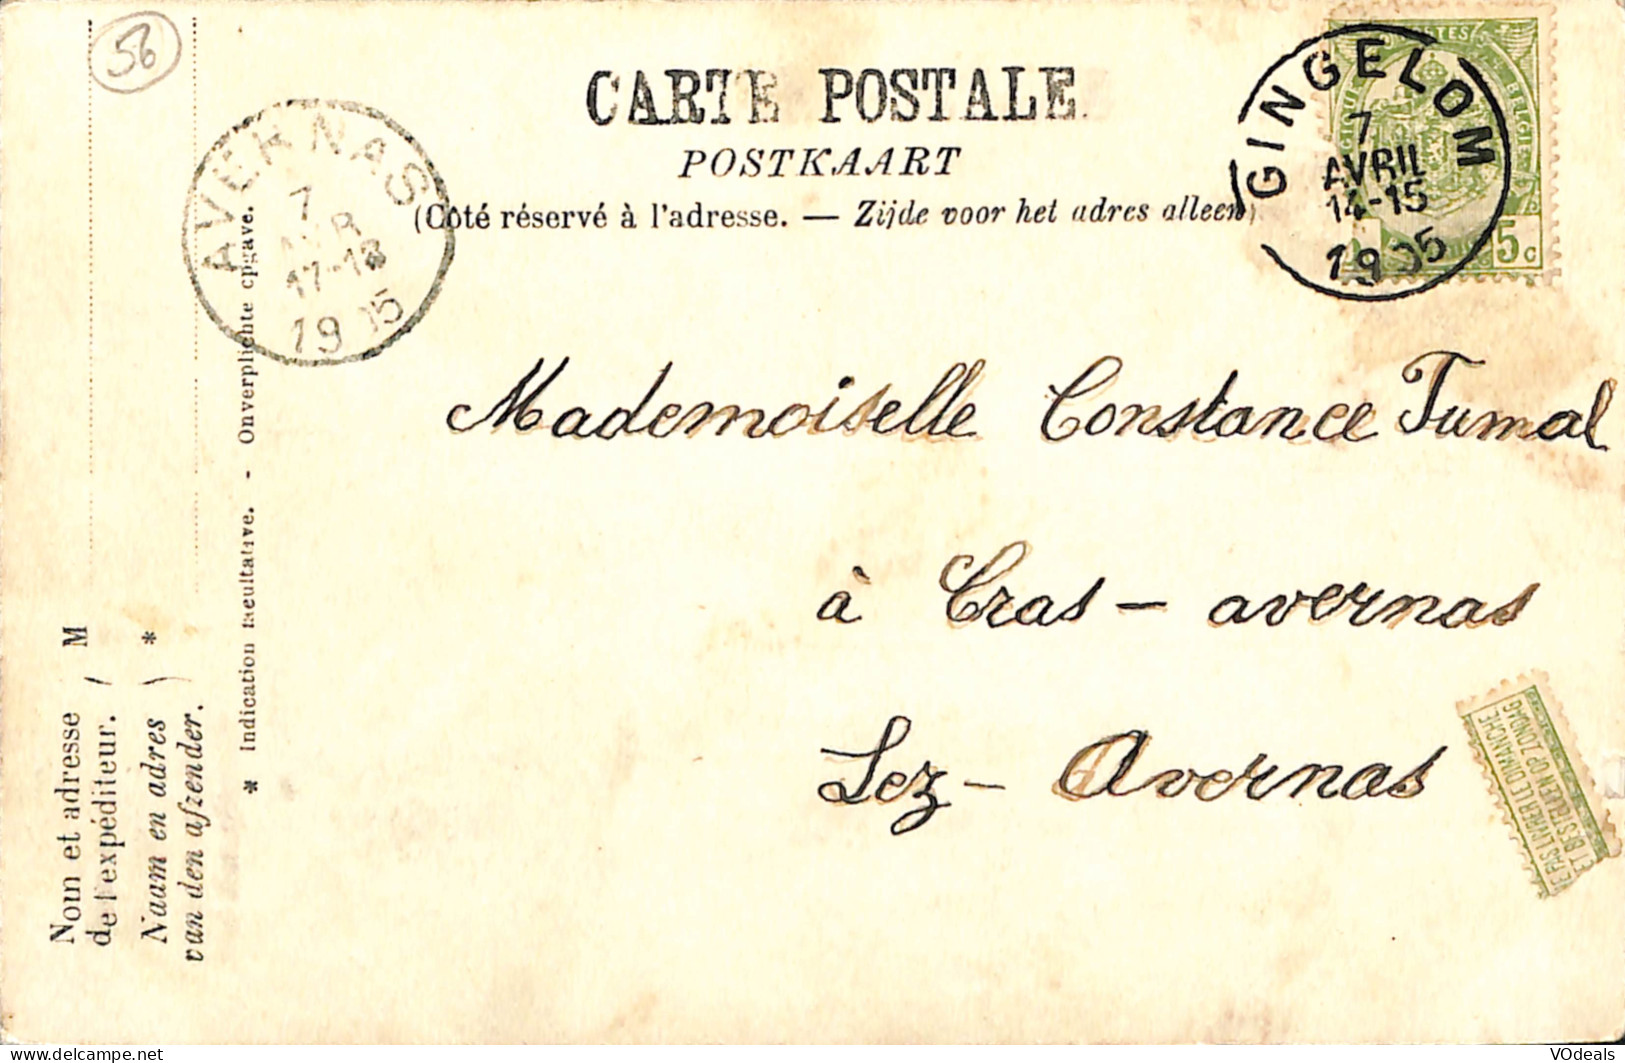 56
CARTE POSTALE
POSTKAART
(Côté réservé à l'adresse. — Zijde voor het adres alleen)
GINGELOM
7
AVRIL
14-15
1905
5c
AVERNAS
7
AVR
17-18
1905
Mademoiselle Constance Tumal
à Cras - avernas
Lez - Avernas
NE PAS LIVRER LE DIMANCHE
NIET BESTELLEN OP ZONDAG
Nom et adresse
de l'expéditeur.
M
Naam en adres
van den afzender.
*
* Indication facultative. - Onverplichte opgave.
VOdeals
www.delcampe.net